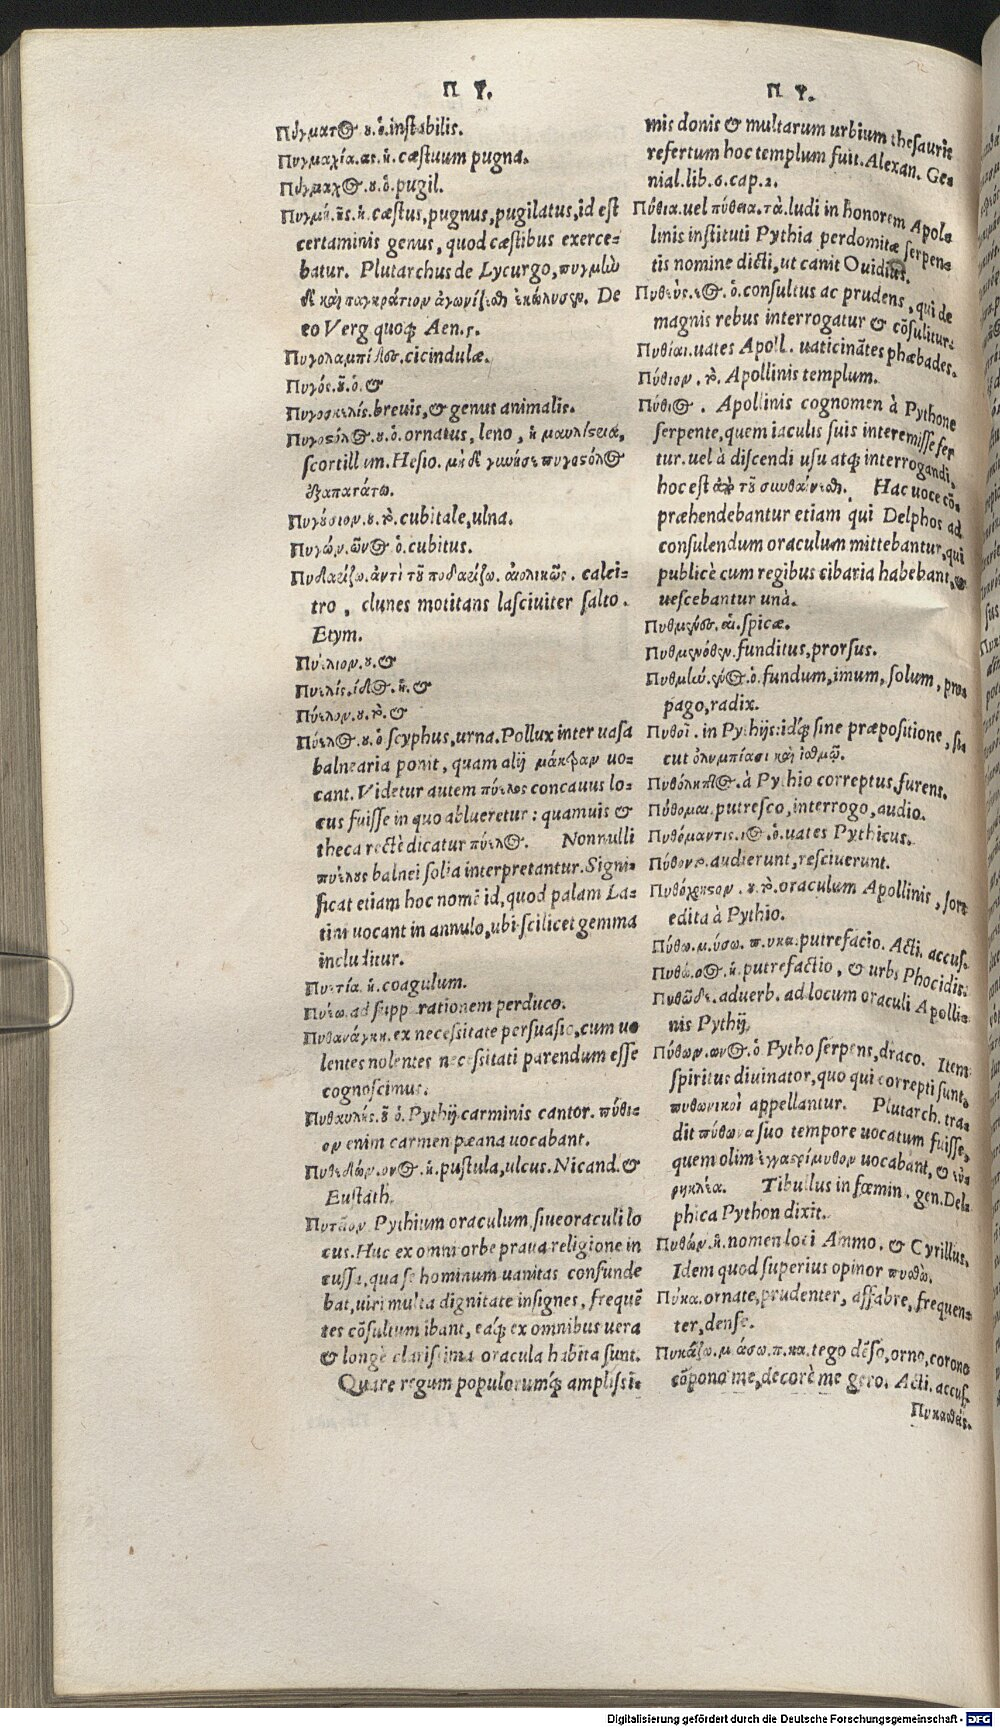 Π Υ.
Πύγματος ου. ὁ. instabilis.
Πυγμαχία. ας. ἡ. cæstuum pugna.
Πύγμαχος. ου. ὁ. pugil.
Πυγμή. ῆς. ἡ. cæstus, pugnus, pugilatus, id est
certaminis genus, quod cæstibus exerce-
batur. Plutarchus de Lycurgo, πυγμὼ
δὲ καὶ παγκράτιον ἀγωνίζεσθαι ἐκώλυσεν. De
eo Verg. quoq; Aen.5.
Πυγολαμπίδες. cicindulæ.
Πυγός. οῦ. ὁ. &
Πυγοσκελίς. brevis, & genus animalis.
Πυγοστόλος. ου. ὁ. ornatus, leno, ἢ
scortillum. Hesio. μὴ δὲ γυνή σε πυγοστόλος
ἐξαπατάτω.
Πυγούσιον. ου. τὸ. cubitale, ulna.
Πυγών. ῶνος ὁ. cubitus.
Πυδαρίζω. ἀντὶ τοῦ ποδαρίζω. αἰολικῶς. calci-
tro, clunes motitans lasciviter salto.
Etym.
Πυέλιον. ου. &
Πυελίς. ίδος. ἡ. &
Πύελον. ου. τὸ. &
Πύελος. ου. ὁ scyphus, urna. Pollux inter uasa
balnearia ponit, quam alij μάκτραν uo-
cant. Videtur autem πύελος concauus lo-
cus fuisse in quo ablueretur: quamuis &
theca rectè dicatur πύελος. Nonnulli
πυέλους balnei solia interpretantur. Signi-
ficat etiam hoc nomē id, quod palam La-
tini uocant in annulo, ubi scilicet gemma
includitur.
Πυετία. ἡ. coagulum.
Πυέω. ad supp rationem perduco.
Πυθανάγκη. ex necessitate persuasio, cum uo
lentes nolentes necessitati parendum esse
cognoscimus.
Πυθαυλής. οῦ ὁ. Pythij carminis cantor. πύθι-
ον enim carmen pæana uocabant.
Πυθεδών. ονος. ἡ. pustula, ulcus. Nicand. &
Eustath.
Pythium oraculum, siue oraculi lo
cus. Huc ex omni orbe praua religione in
cussa, qua se hominum uanitas confunde
bat, uiri multa dignitate insignes, frequē
tes cōsultum ibant, eáq; ex omnibus uera
& longè clarissima oracula habita sunt.
Quare regum populorumq́; amplissi-
Π Υ.
mis donis & multarum urbium thesauris
refertum hoc templum fuit. Alexan. Ge-
nial. lib.6. cap.2.
Πύθια. uel πύθεια. τὰ. ludi in honorem Apol-
linis instituti Pythia perdomitæ serpen-
tis nomine dicti, ut canit Ouidius.
Πυθεύς. έος. ὁ. consultus ac prudens, qui de
magnis rebus interrogatur & cōsulitur.
Πυθίαι. uates Apoll. uaticinātes phœbades.
Πύθιον. τὸ. Apollinis templum.
Πύθιος. Apollinis cognomen à Pythone
serpente, quem iaculis suis interemisse fer
tur. uel à discendi usu atq; interrogandi,
hoc est ἀπὸ τοῦ πυνθάνεσθαι. Hac uoce cō-
præhendebantur etiam qui Delphos ad
consulendum oraculum mittebantur, qui
publicè cum regibus cibaria habebant, &
uescebantur unà.
Πυθμένες. αἱ. spicæ.
Πυθμενόθεν. funditus, prorsus.
Πυθμὼ. ένος. ὁ. fundum, imum, solum, pro-
pago, radix.
Πυθοῖ. in Pythijs: idq́; sine præpositione, si-
cut ὀλυμπίασι καὶ ἰσθμῷ.
Πυθόληπτος. à Pythio correptus, furens.
Πύθομαι. putresco, interrogo, audio.
Πυθόμαντις. ιος. ὁ. uates Pythicus.
Πύθοντο. audierunt, resciuerunt.
Πυθόχρηστον. ου. τὸ. oraculum Apollinis, sors
edita à Pythio.
Πύθω. μ. ύσω. π. υκα. putrefacio. Acti. accus.
Πυθώ. οος. ἡ. putrefactio, & urbs Phocidis.
Πυθῶδε. aduerb. ad locum oraculi Apolli-
nis Pythij,
Πύθων. ωνος. ὁ. Pytho serpens, draco. Item
spiritus diuinator, quo qui correpti sunt,
πυθωνικοὶ appellantur. Plutarch. tra-
dit πύθωνα suo tempore uocatum fuisse,
quem olim ἐγγαστρίμυθον uocabant, & εὐ-
ρηκλέα. Tibullus in fœmin. gen. Del-
phica Python dixit.
Πυθών. ἡ. nomen loci Ammo. & Cyrillus.
Idem quod superius opinor πυθώ.
Πύκα. ornate, prudenter, affabre, frequen-
ter, dense.
Πυκάζω. μ. άσω. π. κα. tego dēso, orno, corono
cōpono me, decorè me gero. Acti. accus.
Πυκασθείς.